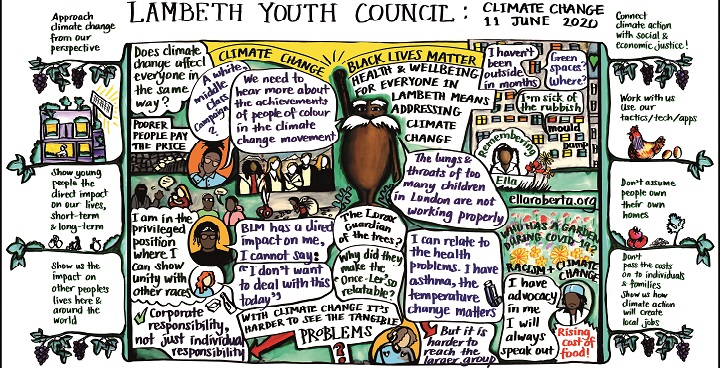 LAMBETH YOUTH COUNCIL:
CLIMATE CHANGE
11 JUNE 2020
Approach
climate change
from our
perspective
Show young
people the
direct impact
on our lives,
short-term
& long-term
Show us the
impact on
other peoples
lives here &
around the
world
Does climate
change affect
everyone in
the same
way?
POORER
PEOPLE PAY
THE PRICE
CLIMATE CHANGE
BLACK LIVES MATTER
A white,
middle
class
campaign
?
We need to
hear more about
the achievements
of people of colour
in the climate
change movement
HEALTH & WELLBEING
FOR EVERYONE IN
LAMBETH MEANS
ADDRESSING
CLIMATE
CHANGE
I haven't
been
outside
in months
Green
spaces?
Where?
I'm sick of
the rubbish,
mould
damp
Remembering
Ella
ellaroberta.org
The lungs &
throats of too
many children
in London are not
working properly
I am in the
privileged
position
where I
can show
unity with
other races
BLM has a direct
impact on me.
I cannot say:
"I don't want
to deal with this
today"
The Lorax
Guardian
of the trees?
Why did they
make the
Once-Ler so
relatable?
I can relate to
the health
problems. I have
asthma, the
temperature
change matters
WHO HAS A GARDEN
DURING COVID-19?
RACISM + CLIMATE
CHANGE
I have
advocacy
in me
I will
always
speak out
Rising
cost of
food!
Corporate
responsibility,
not just individual
responsibility
WITH CLIMATE CHANGE IT'S
HARDER TO SEE THE TANGIBLE
PROBLEMS
?
But it is
harder to
reach the
larger group
Connect
climate action
with social &
economic justice!
Work with us
Use our
tactics/tech/apps
Don't assume
people own
their own
homes
Don't
pass the costs
on to individuals
& families
Show us how
climate action
will create
local jobs